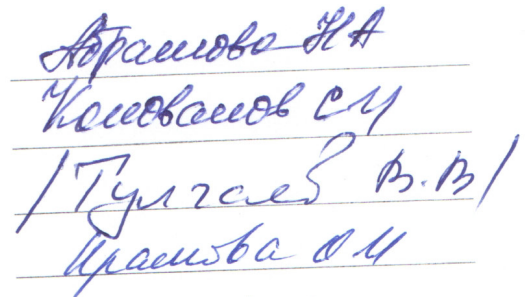 Абрамова НА
Коновалов СИ
/Тулгаев В.В/
Храмова ОИ